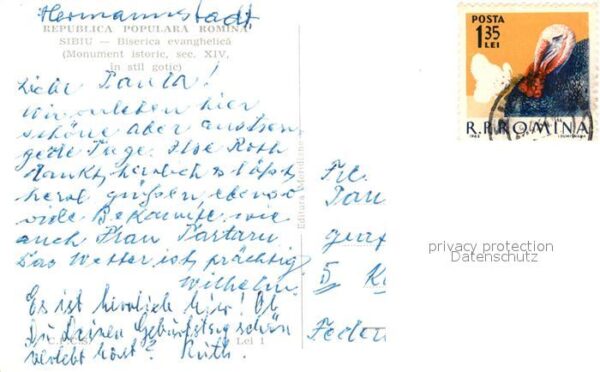 Hermannstadt
REPUBLICA POPULARĂ ROMÎNĂ
SIBIU – Biserica evanghelică
(Monument istoric, sec. XIV,
in stil gotic)
Liebe Panla!
Wir erleben hier
schöne aber anstren-
gende Tage. Ilse Roth
dankt herzlich u. läßt
herzl. grüßen, ebenso
viele Bekannte, wie
auch Frau Tartaru
Das Wetter ist prächtig
Wilhelm.
Es ist herrlich hier! Ob
Du Deinen Geburtstag schön
verlebt hast? Ruth.
Lei 1
Editura Meridiane
POSTA
1 35
LEI
R.P.ROMINA
Frl.
II
privacy protection
Datenschutz